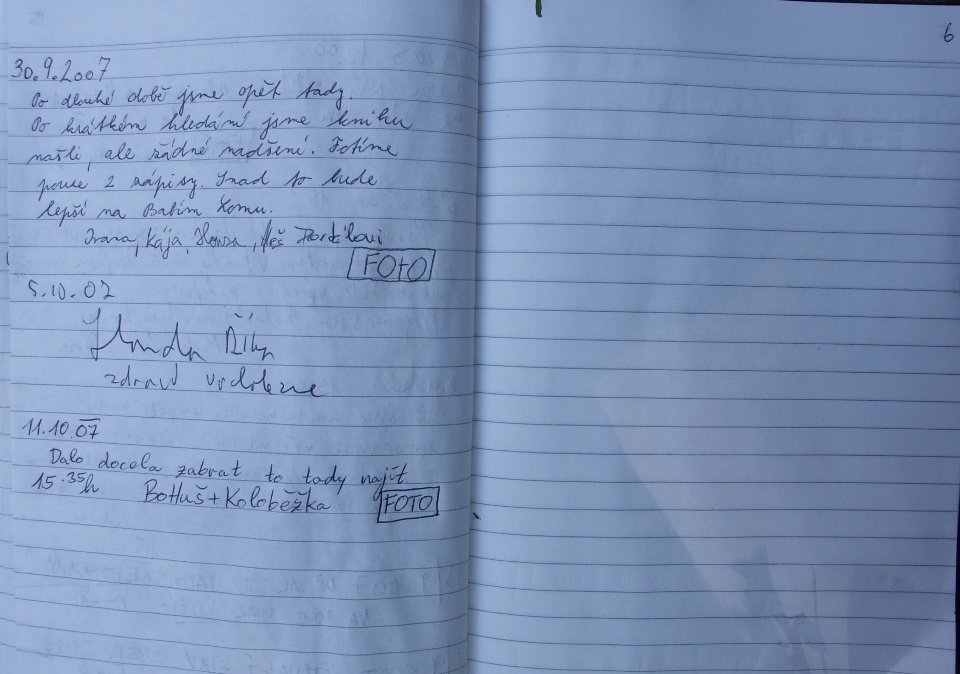 30.9.2007
Po dlouhé době jsme opět tady.
Po krátkém hledání jsme knihu
našli, ale žádné nadšení. Fotíme
pouze 2 zápisy. Snad to bude
lepší na Babím Lomu.
Ivana, Kája, Honza, Aleš
FOTO
5.10.07
zdraví
11.10.07
Dalo docela zabrat to tady najít.
15.35h BoHuš+Koloběžka FOTO
6